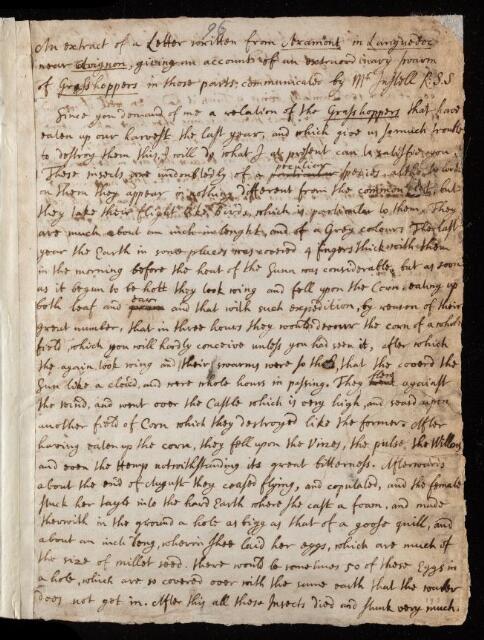 96
An extract of a Letter written from Aramont in Languedoc
near Avignon, giving an account of an extraordinary swarm
of Grasshoppers in those parts, communicated by Mr Justell R.S.S
Since you demand of me a relation of the Grasshoppers that have
eaten up our harvest the last year, and which give us so much trouble
to destroy them this, I will do what I at present can to satisfie you.
peculiar
These insects are undoubtedly of a particular species, altho to look
on them they appear nothing different from the common sort, but
they take their flight like Birds, which is particular to them. They
are much about an inch in lenght, and of a Grey colour. The last
year the Earth in some places was covered 4 fingers thick with them
in the morning before the heat of the Sunn was considerable, but as soon
as it begun to be hott they took wing and fell upon the Corn, eating up
ear
both leaf and and that with such expedition, by reason of their
great number, that in three hours they would devour the corn of a whole
field, which you will hardly conceive unless you had seen it, after which
the again took wing and their swarms were so thick, that the coverd the
Sun like a cloud, and were whole hours in passing. They flew against
the wind, and went over the Castle which is very high, and seasd upon
another field of Corn which they destroyed like the former. After
having eaten up the corn, they fell upon the Vines, the pulse, the Willows
and even the Hemp notwithstanding its great bitterness. Afterwards
about the end of August they ceased flying, and copulated, and the females
stuck her tayle into the hard Earth where she cast a foam, and made
therwith in the ground a hole as bigg as that of a goose quill, and
about an inch long, wherin shee laid her eggs, which are much of
the size of millet seed. there would be sometimes 50 of these Eggs in
a hole, which are so covered over with the same earth that the water
does not get in. After this all these Insects died and stunk very much.